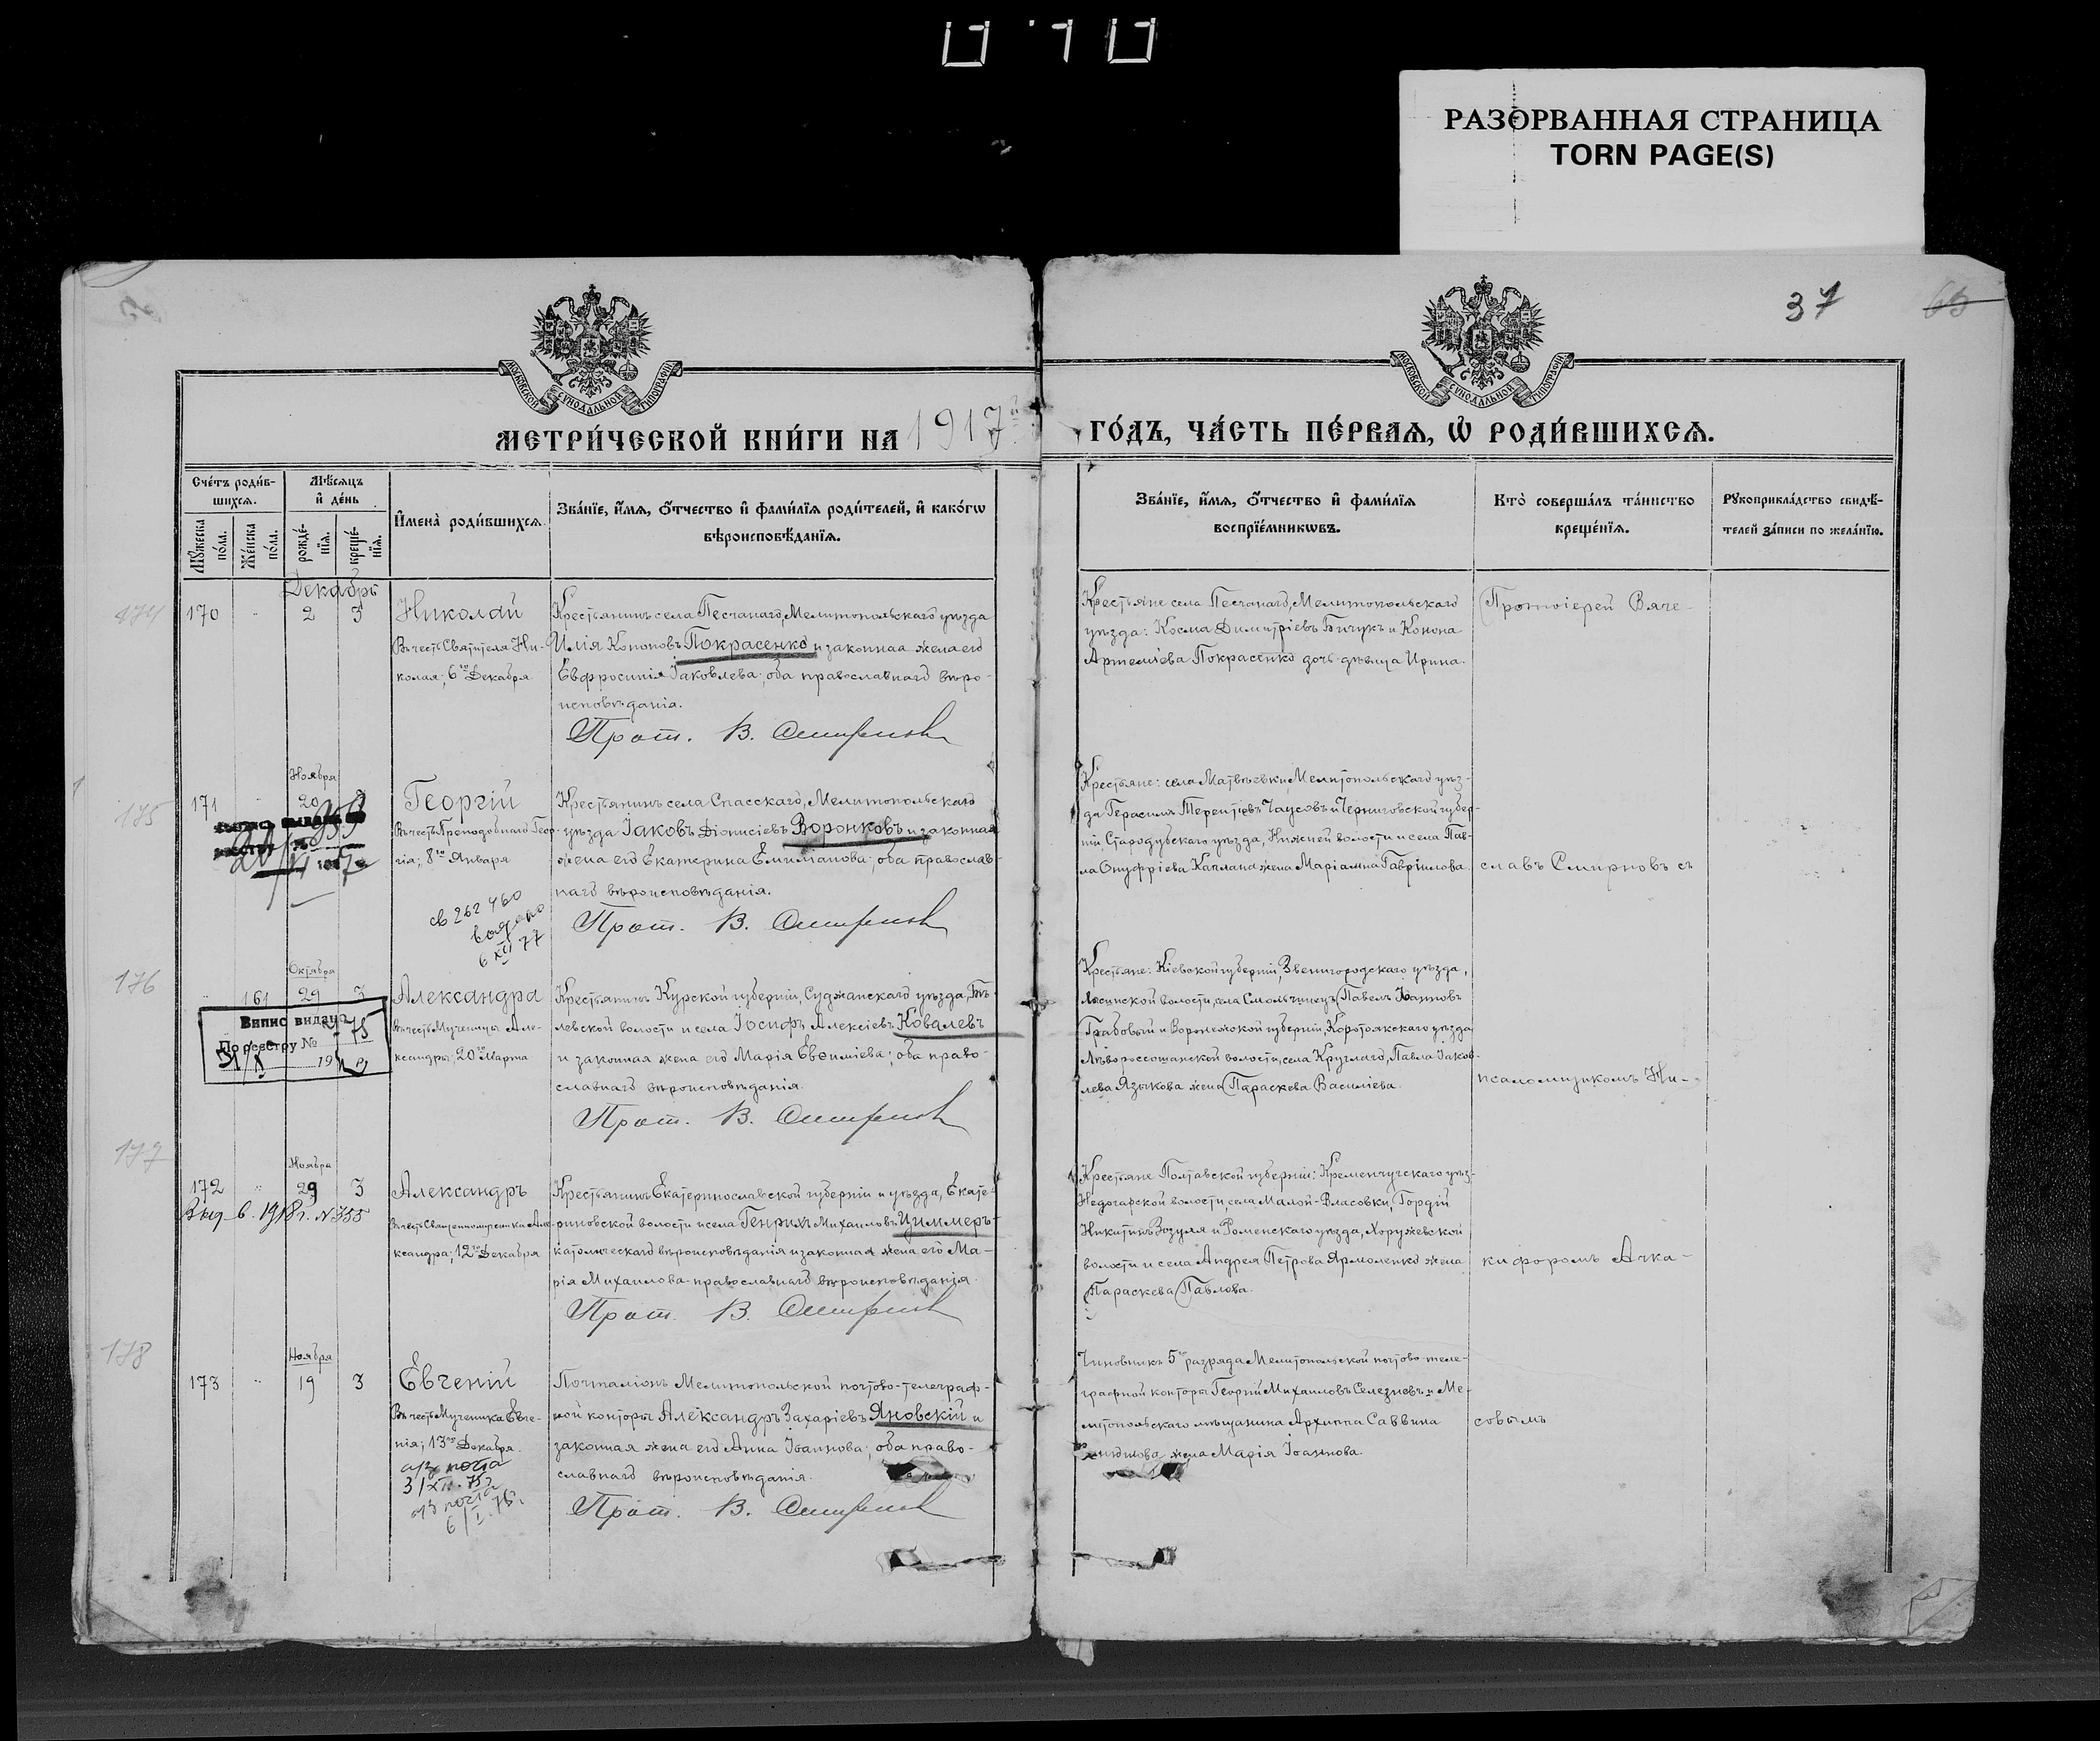 РАЗОРВАННАЯ СТРАНИЦА
TORN PAGE(S)
37
65
МОСКОВСКОЙ СУНОДАЛЬНОЙ ТИПОГРАФІИ
МОСКОВСКОЙ СУНОДАЛЬНОЙ ТИПОГРАФІИ
МЕТРИ́ЧЕСКОЙ КНИ́ГИ НА 1917й
ГО́ДЪ, ЧА́СТЬ ПЕ́РВАѦ, Ѡ҆ РОДИ́ВШИХСѦ.
Сче́тъ роди́в-
шихсѧ.
Мꙋ́жеска по́ла.
Же́нска по́ла.
Мѣ́сѧцъ
и҆ де́нь
рожде́-
нїѧ.
креще́-
нїѧ.
И҆мена̀ роди́вшихсѧ.
Зва́нїе, и҆́мѧ, ѻ҆́тчество и҆ фами́лїѧ роди́телей, и҆ како́гѡ
вѣроисповѣ́данїѧ.
Зва́нїе, и҆́мѧ, ѻ҆́тчество и҆ фами́лїѧ
воспрїе́мникѡвъ.
Кто̀ соверша́лъ та́инство
креще́нїѧ.
Рꙋкоприкла́дство свидѣ́-
телей за́писи по жела́нїю.
Декабрь
174
170
2
3
Николай
Въ честь Святителя Ни-
колая; 6го Декабря
Крестьянинъ села Песчанаго, Мелитопольскаго уѣзда
Илія Кононовъ Покрасенко и законная жена его
Евфросинія Іаковлева; оба православнаго вѣро-
исповѣданія.
Прот. В. Смирновъ
Крестьяне села Песчанаго, Мелитопольскаго
уѣзда: Косма Димитріевъ Бичукъ и Конона
Артеміева Покрасенко дочь-дѣвица Ирина.
Протоіерей Вяче-
175
Ноября
171
20
3
Георгій
Въ честь Преподобнаго Геор-
гія; 8го Января
св 262460
6 XII 77
Крестьянинъ села Спасскаго, Мелитопольскаго
уѣзда Іаковъ Діонисіевъ Воронковъ и законная
жена его Екатерина Емиліанова; оба православ-
наго вѣроисповѣданія.
Прот. В. Смирновъ
Крестьяне: села Матвѣевки Мелитопольскаго уѣз-
да Герасимъ Терентіевъ Чаусовъ и Черниговской губер-
ніи, Стародубскаго уѣзда, Нижней волости и села Пав-
ла Онуфріева Каплана жена Маріамна Гавріилова.
славъ Смирновъ съ
176
Октября
161
29
3
Випис видано
По реестру № 75
Александра
Въ честь Мученицы Але-
ксандры; 20го Марта
Крестьянинъ Курской губерніи, Суджанскаго уѣзда, Бѣ-
левской волости и села Іосифъ Алексіевъ Ковалевъ
и законная жена его Марія Евѳиміева; оба право-
славнаго вѣроисповѣданія.
Прот. В. Смирновъ
Крестьяне: Кіевской губерніи, Звенигородскаго уѣзда,
Лысинской волости, села Смольчинецъ Павелъ Іоанновъ
Грабовый и Воронежской губерніи, Коротоякскаго уѣзда
Лѣвороссошанской волости, села Круглаго, Павла Іаков-
лева Языкова жена Параскева Василіева.
псаломщикомъ Ни-
177
Ноября
172
29
3
Выд. в. 1918 г. № 355
Александръ
Въ честь Священномученика Але-
ксандра; 12го Декабря
Крестьянинъ Екатеринославской губерніи и уѣзда, Екате-
риновской волости и села Генрихъ Михаиловъ Циммеръ-
католическаго вѣроисповѣданія и законная жена его Ма-
рія Михаилова-православнаго вѣроисповѣданія.
Прот. В. Смирновъ
Крестьяне Полтавской губерніи: Кременчугскаго уѣз-
Недогарской волости, села Малой-Власовки, Гордій
Никитинъ Зозуля и Роменскаго уѣзда, Хоружевской
волости и села Андрея Петрова Ярмоленко жена
Параскева Павлова.
кифоромъ Ачка-
178
Ноября
173
19
3
Евгеній
Въ честь Мученика Евге-
нія; 13го Декабря.
Почталіонъ Мелитопольской почтово-телеграф-
ной конторы Александръ Захаріевъ Яновскій и
законная жена его Анна Іоаннова; оба право-
славнаго вѣроисповѣданія.
Прот. В. Смирновъ
Чиновникъ 5го разряда Мелитопольской почтово-теле-
графной конторы Георгій Михаиловъ Селезневъ и Ме-
литопольскаго мѣщанина Архиппа Саввина
жена Марія Іоаннова.
совымъ